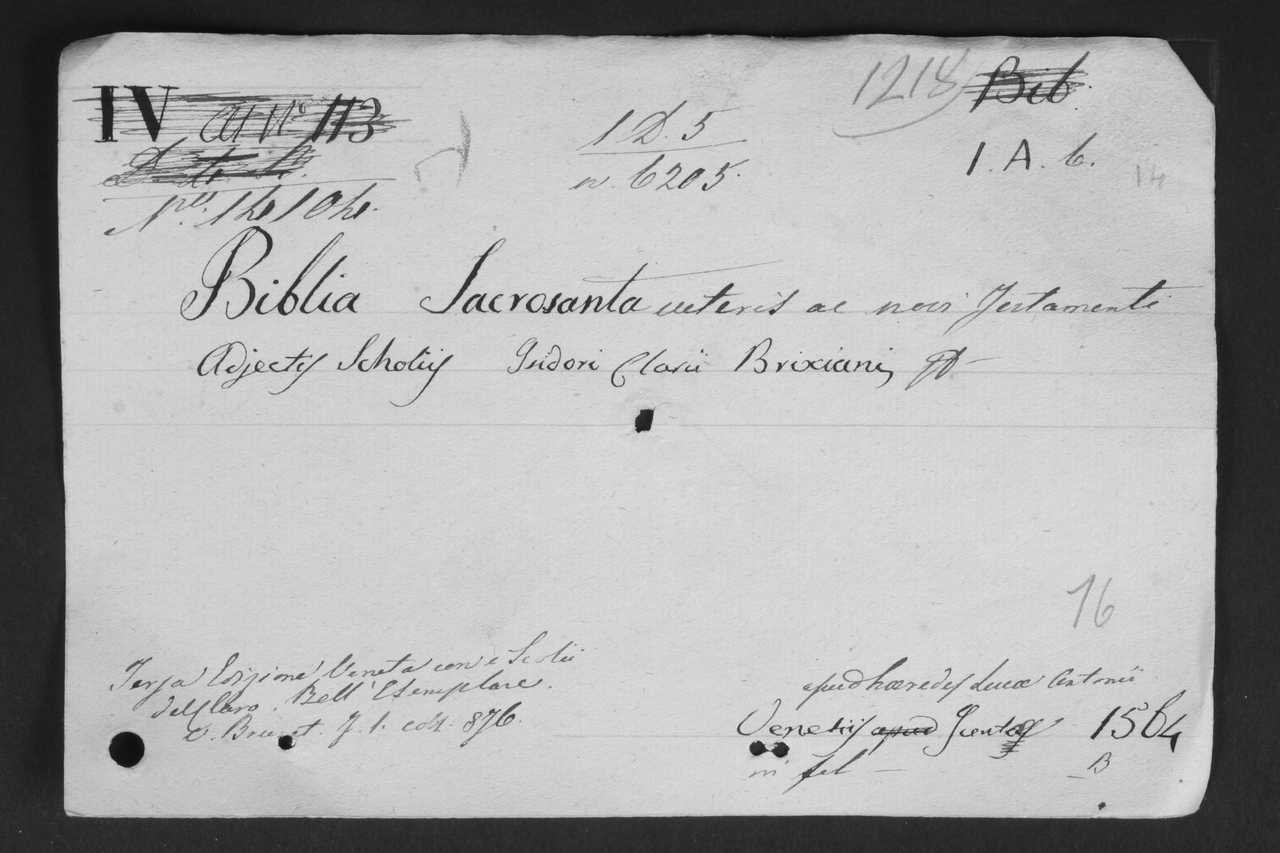 IV 113
1218
Bib.
1 D. 5
n. 6205.
1. A. 6.
14
Biblia Sacrosanta veteris ac novi Testamenti
Adjectis Scholiis Isidori Clarii Brixiani
76
Terza Edizione Veneta con i Scolii
del Claro. Bell'Esemplare.
V. Brunet. T. 1. col. 876.
apud hæredes Lucæ Antonii
Venetiis apud Juntæ 1564
in fol —
B